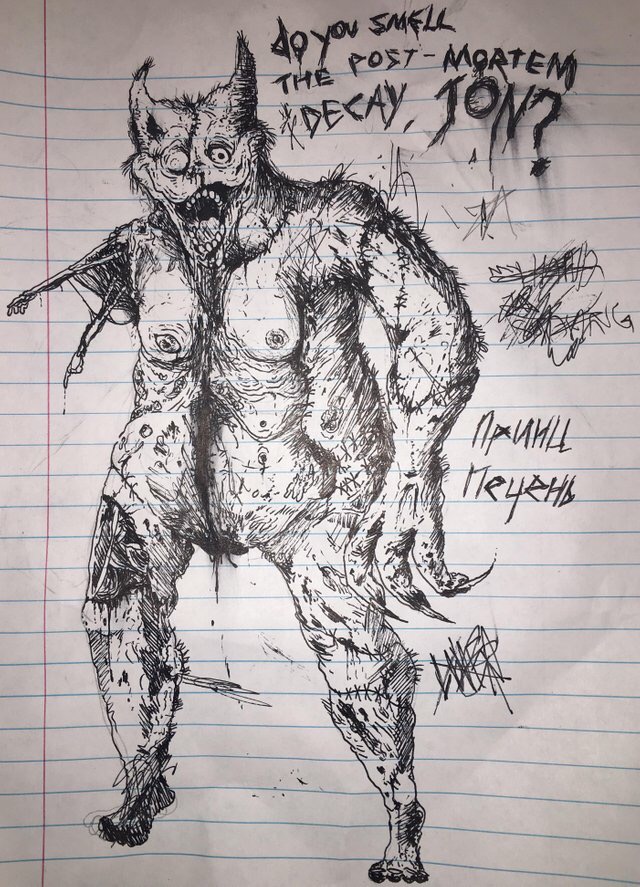 do you SMELL
THE POST-MORTEM
DECAY, JON?
ПРИНЦ
Печень